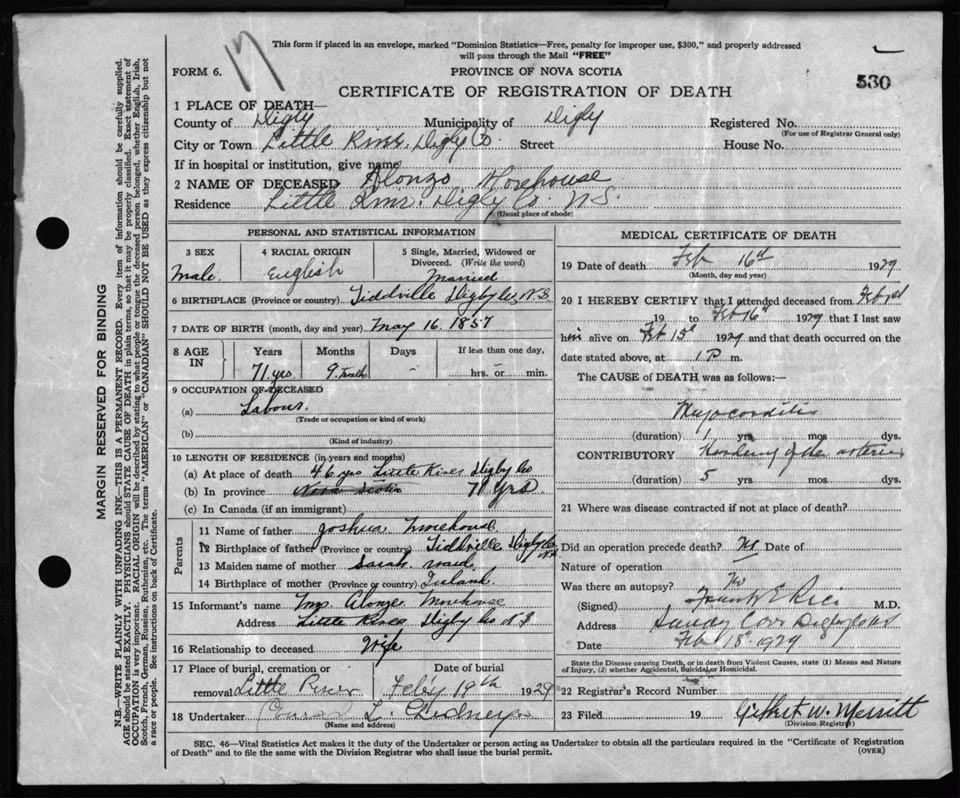 17
This form if placed in an envelope, marked "Dominion Statistics—Free, penalty for improper use, $300," and properly addressed
will pass through the Mail "FREE"
FORM 6.
PROVINCE OF NOVA SCOTIA
530
CERTIFICATE OF REGISTRATION OF DEATH
1 PLACE OF DEATH—
County of Digby Municipality of Digby Registered No.
(For use of Registrar General only)
City or Town Little River, Digby Co Street House No.
If in hospital or institution, give name
2 NAME OF DECEASED Alonzo Morehouse
Residence Little River. Digby Co. N.S.
(Usual place of abode)
PERSONAL AND STATISTICAL INFORMATION
3 SEX 4 RACIAL ORIGIN 5 Single, Married, Widowed or
Divorced. (Write the word)
Male. English Married
6 BIRTHPLACE (Province or country) Tiddville Digby Co, N.S
7 DATE OF BIRTH (month, day and year) May 16. 1857
8 AGE IN Years Months Days If less than one day,
71 yrs 9 - hrs. or min.
9 OCCUPATION OF DECEASED
(a) Labour.
(Trade or occupation or kind of work)
(b)
(Kind of industry)
10 LENGTH OF RESIDENCE (in years and months)
(a) At place of death 46 yrs Little River Digby Co
(b) In province Nova Scotia 71 yrs.
(c) In Canada (if an immigrant)
Parents
11 Name of father Joshua Morehouse
12 Birthplace of father (Province or country) Tiddville Digby Co N.S
13 Maiden name of mother Sarah
14 Birthplace of mother (Province or country) Ireland.
15 Informant's name Mrs Alonzo Morehouse
Address Little River Digby Co N.S
16 Relationship to deceased Wife
17 Place of burial, cremation or Date of burial
removal Little River Feb'y 19th 1929
18 Undertaker Conrad L.
(Name and address)
MEDICAL CERTIFICATE OF DEATH
19 Date of death Feb 16th 1929
(Month, day and year)
20 I HEREBY CERTIFY that I attended deceased from Feb
19 to Feb 16th 1929 that I last saw
him alive on Feb 15th 1929 and that death occurred on the
date stated above, at 1 P m.
The CAUSE OF DEATH was as follows:—
Myocarditis
(duration) 1 yrs. mos. dys.
CONTRIBUTORY Hardening of the arteries
(duration) 5 yrs. mos. dys.
21 Where was disease contracted if not at place of death?
Did an operation precede death? No Date of
Nature of operation
Was there an autopsy? No
(Signed) Frank E Rice M.D.
Address Sandy Cove Digby Co NS
Date Feb 18th 1929
State the Disease causing Death, or in death from Violent Causes, state (1) Means and Nature
of Injury, (2) whether Accidental, Suicidal or Homicidal.
22 Registrar's Record Number
23 Filed 19 Gilbert W. Merritt
(Division Registrar)
SEC. 46—Vital Statistics Act makes it the duty of the Undertaker or person acting as Undertaker to obtain all the particulars required in the "Certificate of Registration
of Death" and to file the same with the Division Registrar who shall issue the burial permit.
(OVER)
MARGIN RESERVED FOR BINDING
N.B.—WRITE PLAINLY WITH UNFADING INK—THIS IS A PERMANENT RECORD. Every item of information should be carefully supplied.
AGE should be stated EXACTLY. PHYSICIANS should STATE CAUSE OF DEATH in plain terms, so that it may be properly classified. Exact statement of
OCCUPATION is very important. RACIAL ORIGIN will be described by stating to what people or tongue the deceased person belonged, whether English, Irish,
Scotch, French, German, Russian, Ruthenian, etc. The terms "AMERICAN" or "CANADIAN" SHOULD NOT BE USED as they express citizenship but not
a race or people. See instructions on back of Certificate.